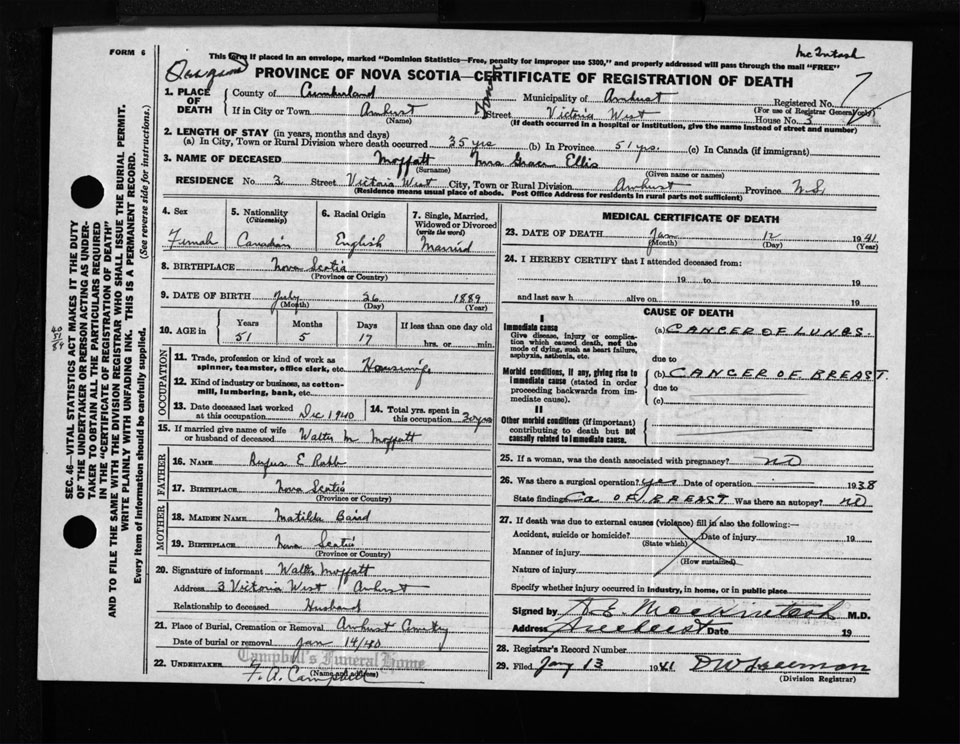 McIntosh
FORM 6
This form if placed in an envelope, marked "Dominion Statistics—Free, penalty for improper use $300," and properly addressed will pass through the mail "FREE"
PROVINCE OF NOVA SCOTIA—CERTIFICATE OF REGISTRATION OF DEATH
1. PLACE OF DEATH
County of Cumberland Municipality of Amherst Registered No. 7
(For use of Registrar General only)
If in City or Town Amherst Street Victoria West House No. 3
(Name) (If death occurred in a hospital or institution, give the name instead of street and number)
2. LENGTH OF STAY (in years, months and days)
(a) In City, Town or Rural Division where death occurred 35 yrs (b) In Province 51 yrs. (c) In Canada (if immigrant)
3. NAME OF DECEASED Moffatt Mrs Grace Ellis
(Surname) (Given name or names)
RESIDENCE No 3. Street Victoria West City, Town or Rural Division Amherst Province N.S.
(Residence means usual place of abode. Post Office Address for residents in rural parts not sufficient)
4. Sex
Female
5. Nationality
(Citizenship)
Canadian
6. Racial Origin
English
7. Single, Married, Widowed or Divorced
(write the word)
Married
8. BIRTHPLACE Nova Scotia
(Province or Country)
9. DATE OF BIRTH July 26 1889
(Month) (Day) (Year)
10. AGE in Years Months Days If less than one day old
51 5 17 hrs. or min.
OCCUPATION
11. Trade, profession or kind of work as
spinner, teamster, office clerk, etc. Housewife
12. Kind of industry or business, as cotton-
mill, lumbering, bank, etc.
13. Date deceased last worked
at this occupation Dec 1940
14. Total yrs. spent in
this occupation 30 yrs
15. If married give name of wife
or husband of deceased Walter M Moffatt
FATHER
16. NAME Rufus E Robb
17. BIRTHPLACE Nova Scotia
(Province or Country)
MOTHER
18. MAIDEN NAME Matilda Baird
19. BIRTHPLACE Nova Scotia
(Province or Country)
20. Signature of informant Walter Moffatt
Address 3 Victoria West Amherst
Relationship to deceased Husband
21. Place of Burial, Cremation or Removal Amherst
Date of burial or removal Jan 14/40
Campbell's Funeral Home
22. UNDERTAKER F. A. Campbell
(Name and address)
MEDICAL CERTIFICATE OF DEATH
23. DATE OF DEATH Jan 12 1941
(Month) (Day) (Year)
24. I HEREBY CERTIFY that I attended deceased from:
19 to 19
and last saw h alive on 19
CAUSE OF DEATH
I
Immediate cause (a) CANCER OF LUNGS.
Give disease, injury or complica-
tion which caused death, not the
mode of dying, such as heart failure,
asphyxia, asthenia, etc.
due to
Morbid conditions, if any, giving rise to (b) CANCER OF BREAST.
immediate cause (stated in order due to
proceeding backwards from im-
mediate cause). (c)
II
Other morbid conditions (if important)
contributing to death but not
causally related to immediate cause.
25. If a woman, was the death associated with pregnancy? NO
26. Was there a surgical operation? yes Date of operation 1938
State finding Ca OF BREAST Was there an autopsy? NO
27. If death was due to external causes (violence) fill in also the following:—
Accident, suicide or homicide? Date of injury 19
(State which)
Manner of injury
(How sustained)
Nature of injury
Specify whether injury occurred in industry, in home, or in public place
Signed by A E Mackintosh M.D.
Address Amherst Date 19
28. Registrar's Record Number
29. Filed Jany 13 1941
(Division Registrar)
SEC. 46—VITAL STATISTICS ACT MAKES IT THE DUTY
OF THE UNDERTAKER OR PERSON ACTING AS UNDER-
TAKER TO OBTAIN ALL THE PARTICULARS REQUIRED
IN THE "CERTIFICATE OF REGISTRATION OF DEATH"
AND TO FILE THE SAME WITH THE DIVISION REGISTRAR WHO SHALL ISSUE THE BURIAL PERMIT.
WRITE PLAINLY WITH UNFADING INK. THIS IS A PERMANENT RECORD.
Every item of information should be carefully supplied. (See reverse side for instructions.)